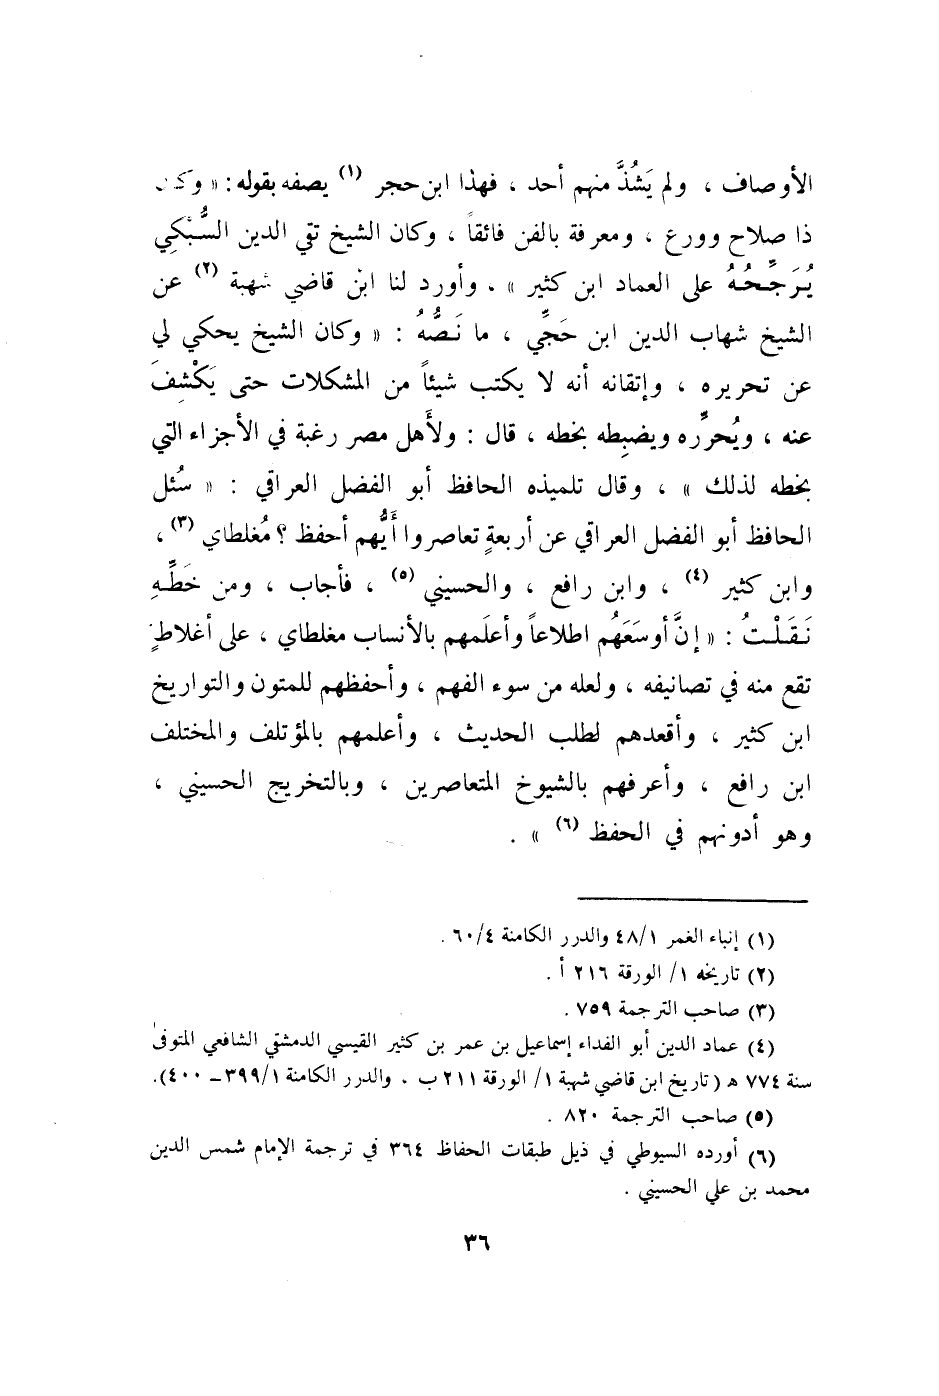 الأوصاف ، ولم يَشُذَّ منهم أحد ، فهذا ابن حجر (١) يصفه بقوله : « وكان
ذا صلاح وورع ، ومعرفة بالفن فائقاً ، وكان الشيخ تقي الدين السُّبْكي
يُرَجِّحُهُ على العماد ابن كثير » . وأورد لنا ابن قاضي شهبة (٢) عن
الشيخ شهاب الدين ابن حَجِّي ، ما نَصُّهُ : « وكان الشيخ يحكي لي
عن تحريره ، وإتقانه أنه لا يكتب شيئاً من المشكلات حتى يَكْشِفَ
عنه ، ويُحرِّره ويضبِطه بخطه ، قال : ولأَهل مصر رغبة في الأجزاء التي
بخطه لذلك » ، وقال تلميذه الحافظ أبو الفضل العراقي : « سُئل
الحافظ أبو الفضل العراقي عن أربعةٍ تعاصروا أَيُّهم أحفظ ؟ مُغلطاي (٣) ،
وابن كثير (٤) ، وابن رافع ، والحسيني (٥) ، فأجاب ، ومن خَطِّهِ
نَقَلْتُ : « إنَّ أوسَعَهُم اطلاعاً وأعلَمهم بالأنساب مغلطاي ، على أغلاطٍ
تقع منه في تصانيفه ، ولعله من سوء الفهم ، وأحفظهم للمتون والتواريخ
ابن كثير ، وأقعدهم لطلب الحديث ، وأعلمهم بالمؤتلف والمختلف
ابن رافع ، وأعرفهم بالشيوخ المتعاصرين ، وبالتخريج الحسيني ،
وهو أدونهم في الحفظ (٦) » .
(١) إنباء الغمر ٤٨/١ والدرر الكامنة ٦٠/٤ .
(٢) تاريخه ١/ الورقة ٢١٦ أ .
(٣) صاحب الترجمة ٧٥٩ .
(٤) عماد الدين أبو الفداء إسماعيل بن عمر بن كثير القيسي الدمشقي الشافعي المتوفى
سنة ٧٧٤ ه ( تاريخ ابن قاضي شهبة ١/ الورقة ٢١١ ب . والدرر الكامنة ٣٩٩/١ ـ ٤٠٠).
(٥) صاحب الترجمة ٨٢٠ .
(٦) أورده السيوطي في ذيل طبقات الحفاظ ٣٦٤ في ترجمة الإمام شمس الدين
محمد بن علي الحسيني .
٣٦